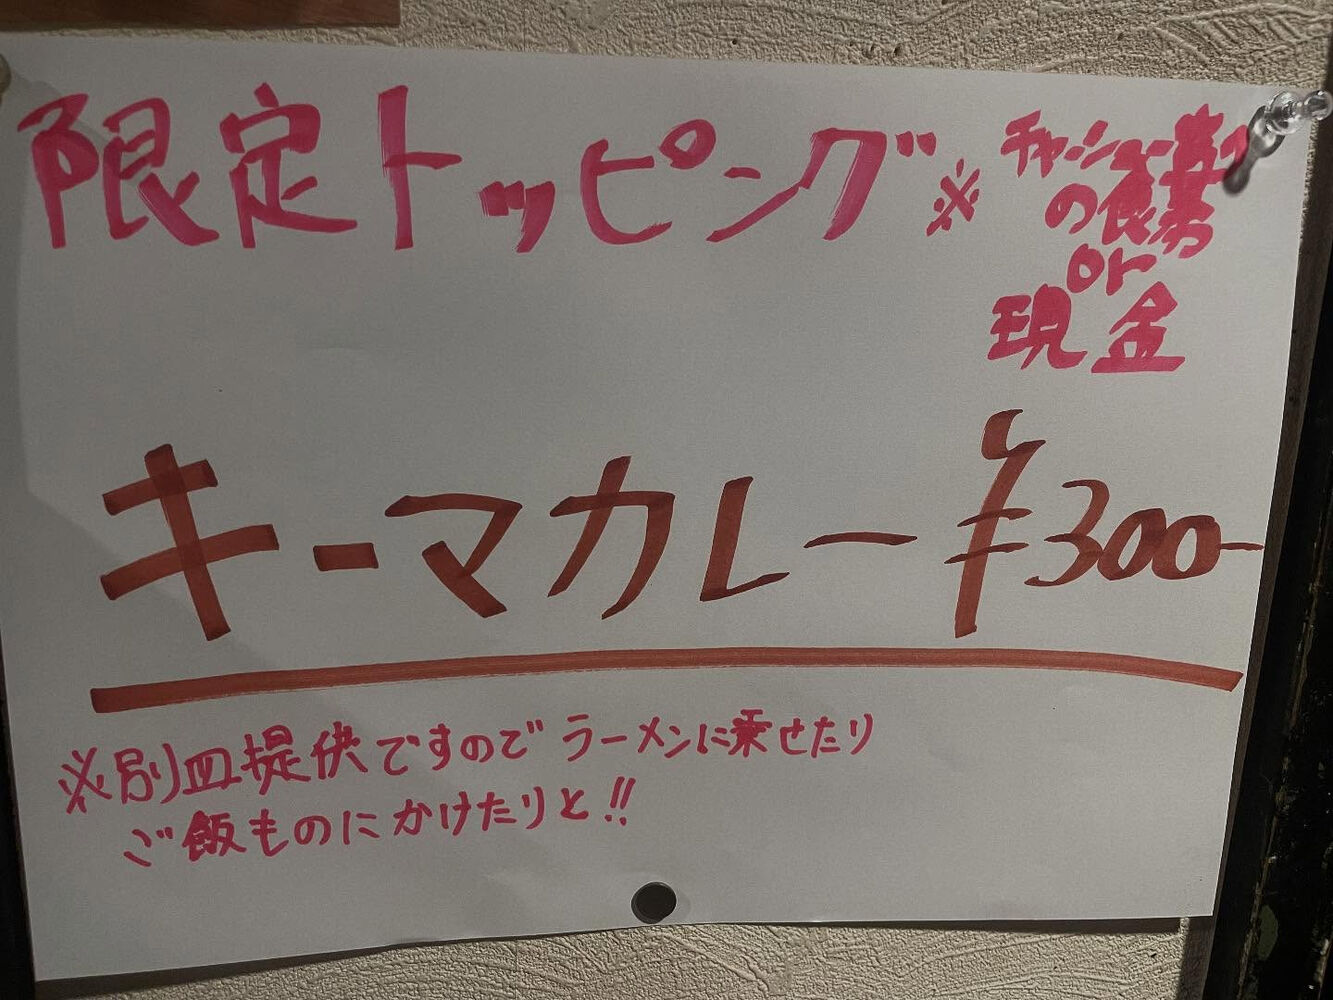 限定トッピング
※チャーシュー
の食券
or
現金
キーマカレー ¥300-
※別皿提供ですのでラーメンに乗せたり
ご飯ものにかけたりと!!